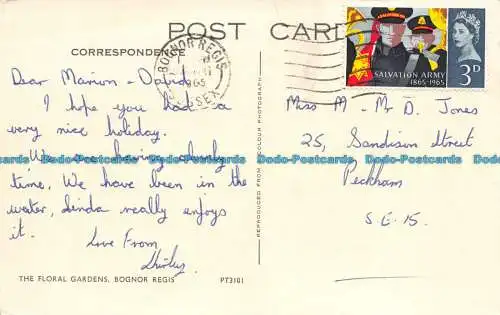 POST CARD
CORRESPONDENCE
BOGNOR REGIS
1965
SUSSEX
SALVATION ARMY
1865-1965
3D
Dear Marion - David
I hope you had a
very nice holiday.
We are having a lovely
time. We have been in the
water, Linda really enjoys
it.
Love From
Shirley
THE FLORAL GARDENS, BOGNOR REGIS PT3101
REPRODUCED FROM A COLOUR PHOTOGRAPH
Miss M - Mr D. Jones
25, Sandison Street
Peckham
S.E.15.
Dodo-Postcards Dodo-Postcards Dodo-Postcards Dodo-Postcards Dodo-Postcards